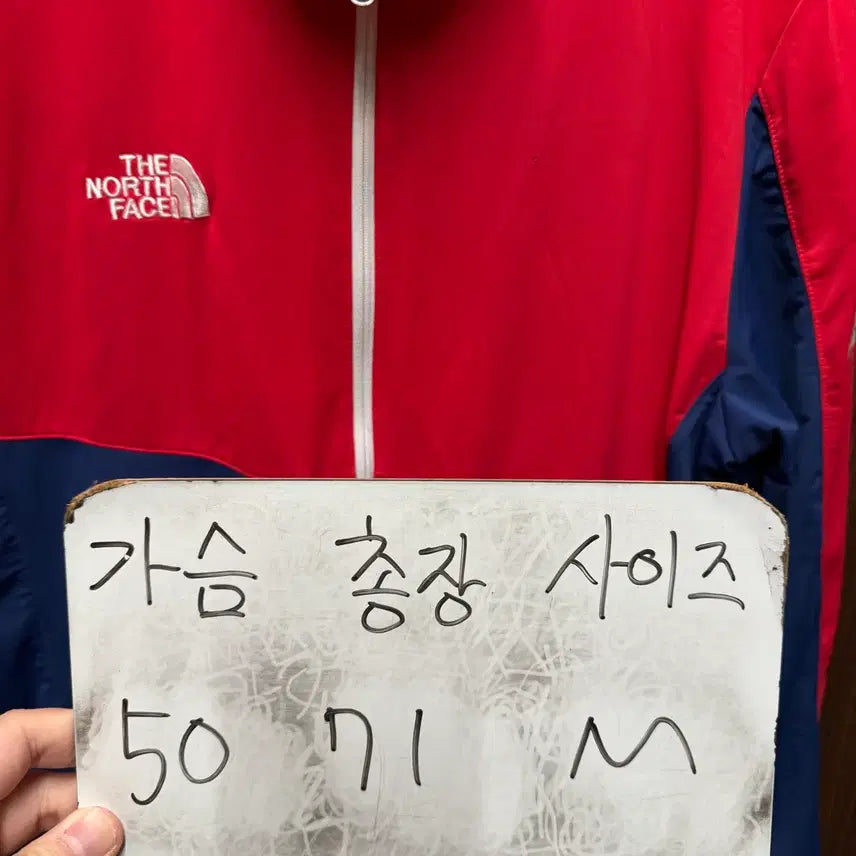 THE
NORTH
FACE
가슴 총장 사이즈
50 71 M